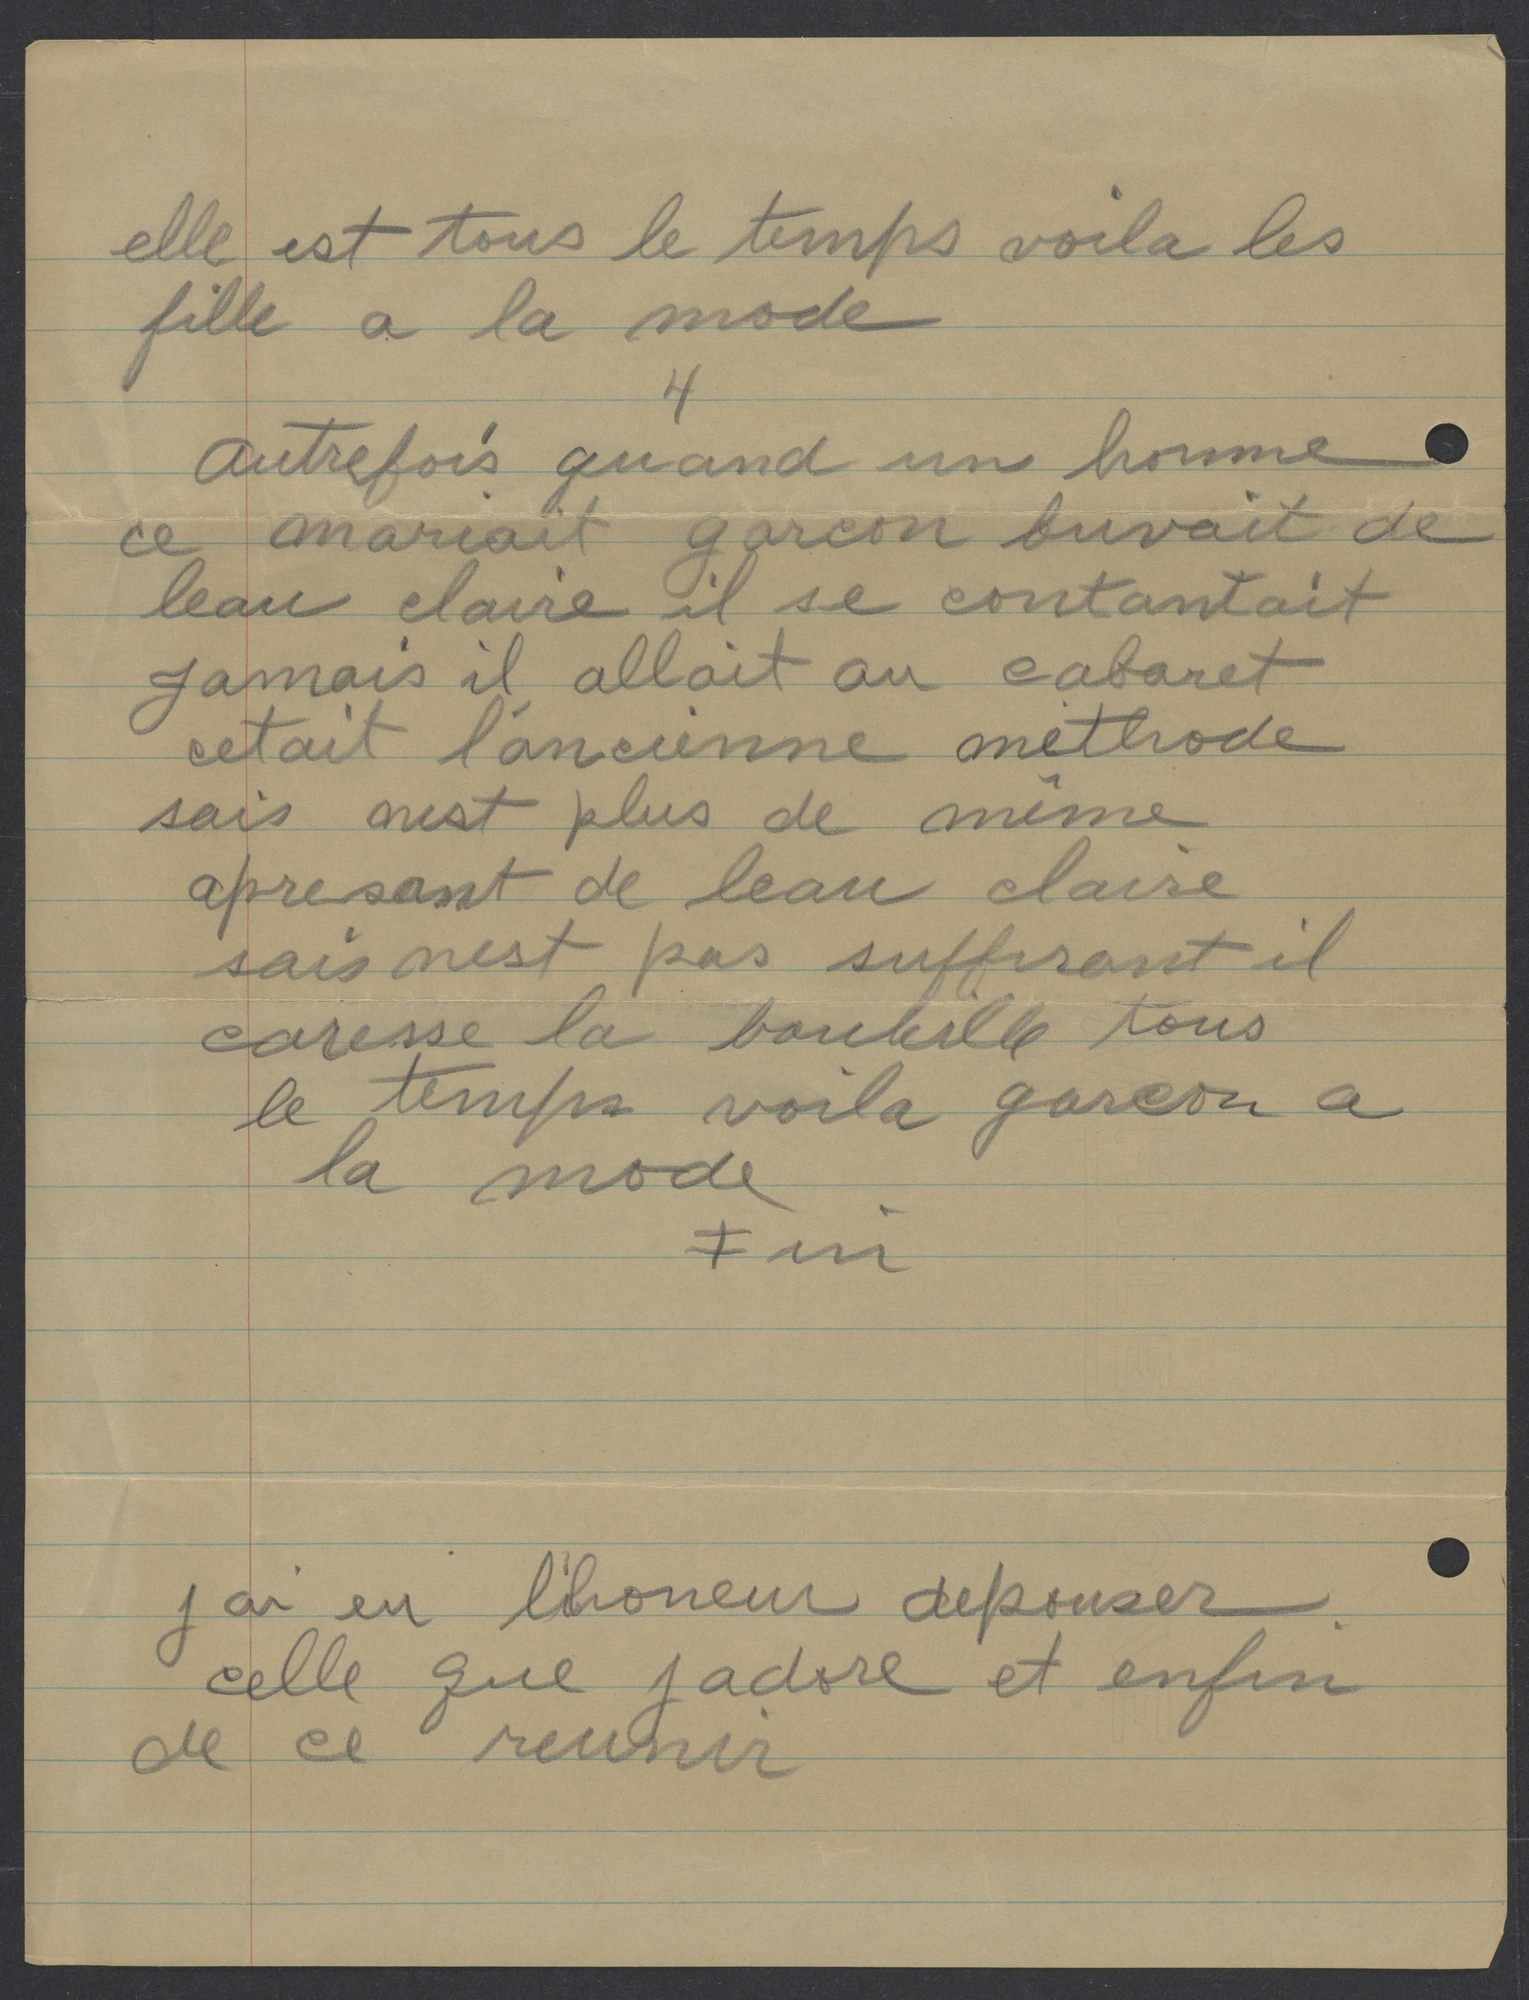 elle est tous le temps voila les
fille a la mode
4
Autrefois quand un homme
ce mariait garcon buvait de
leau claire il se contantait
jamais il allait au cabaret
cetait l'ancienne méthode
sais nest plus de même
apresant de leau claire
sais nest pas suffisant il
caresse la bouteille tous
le temps voila garcon a
la mode
Fin
jai eu l'honeur depouser
celle que jadore et enfin
de ce reunir